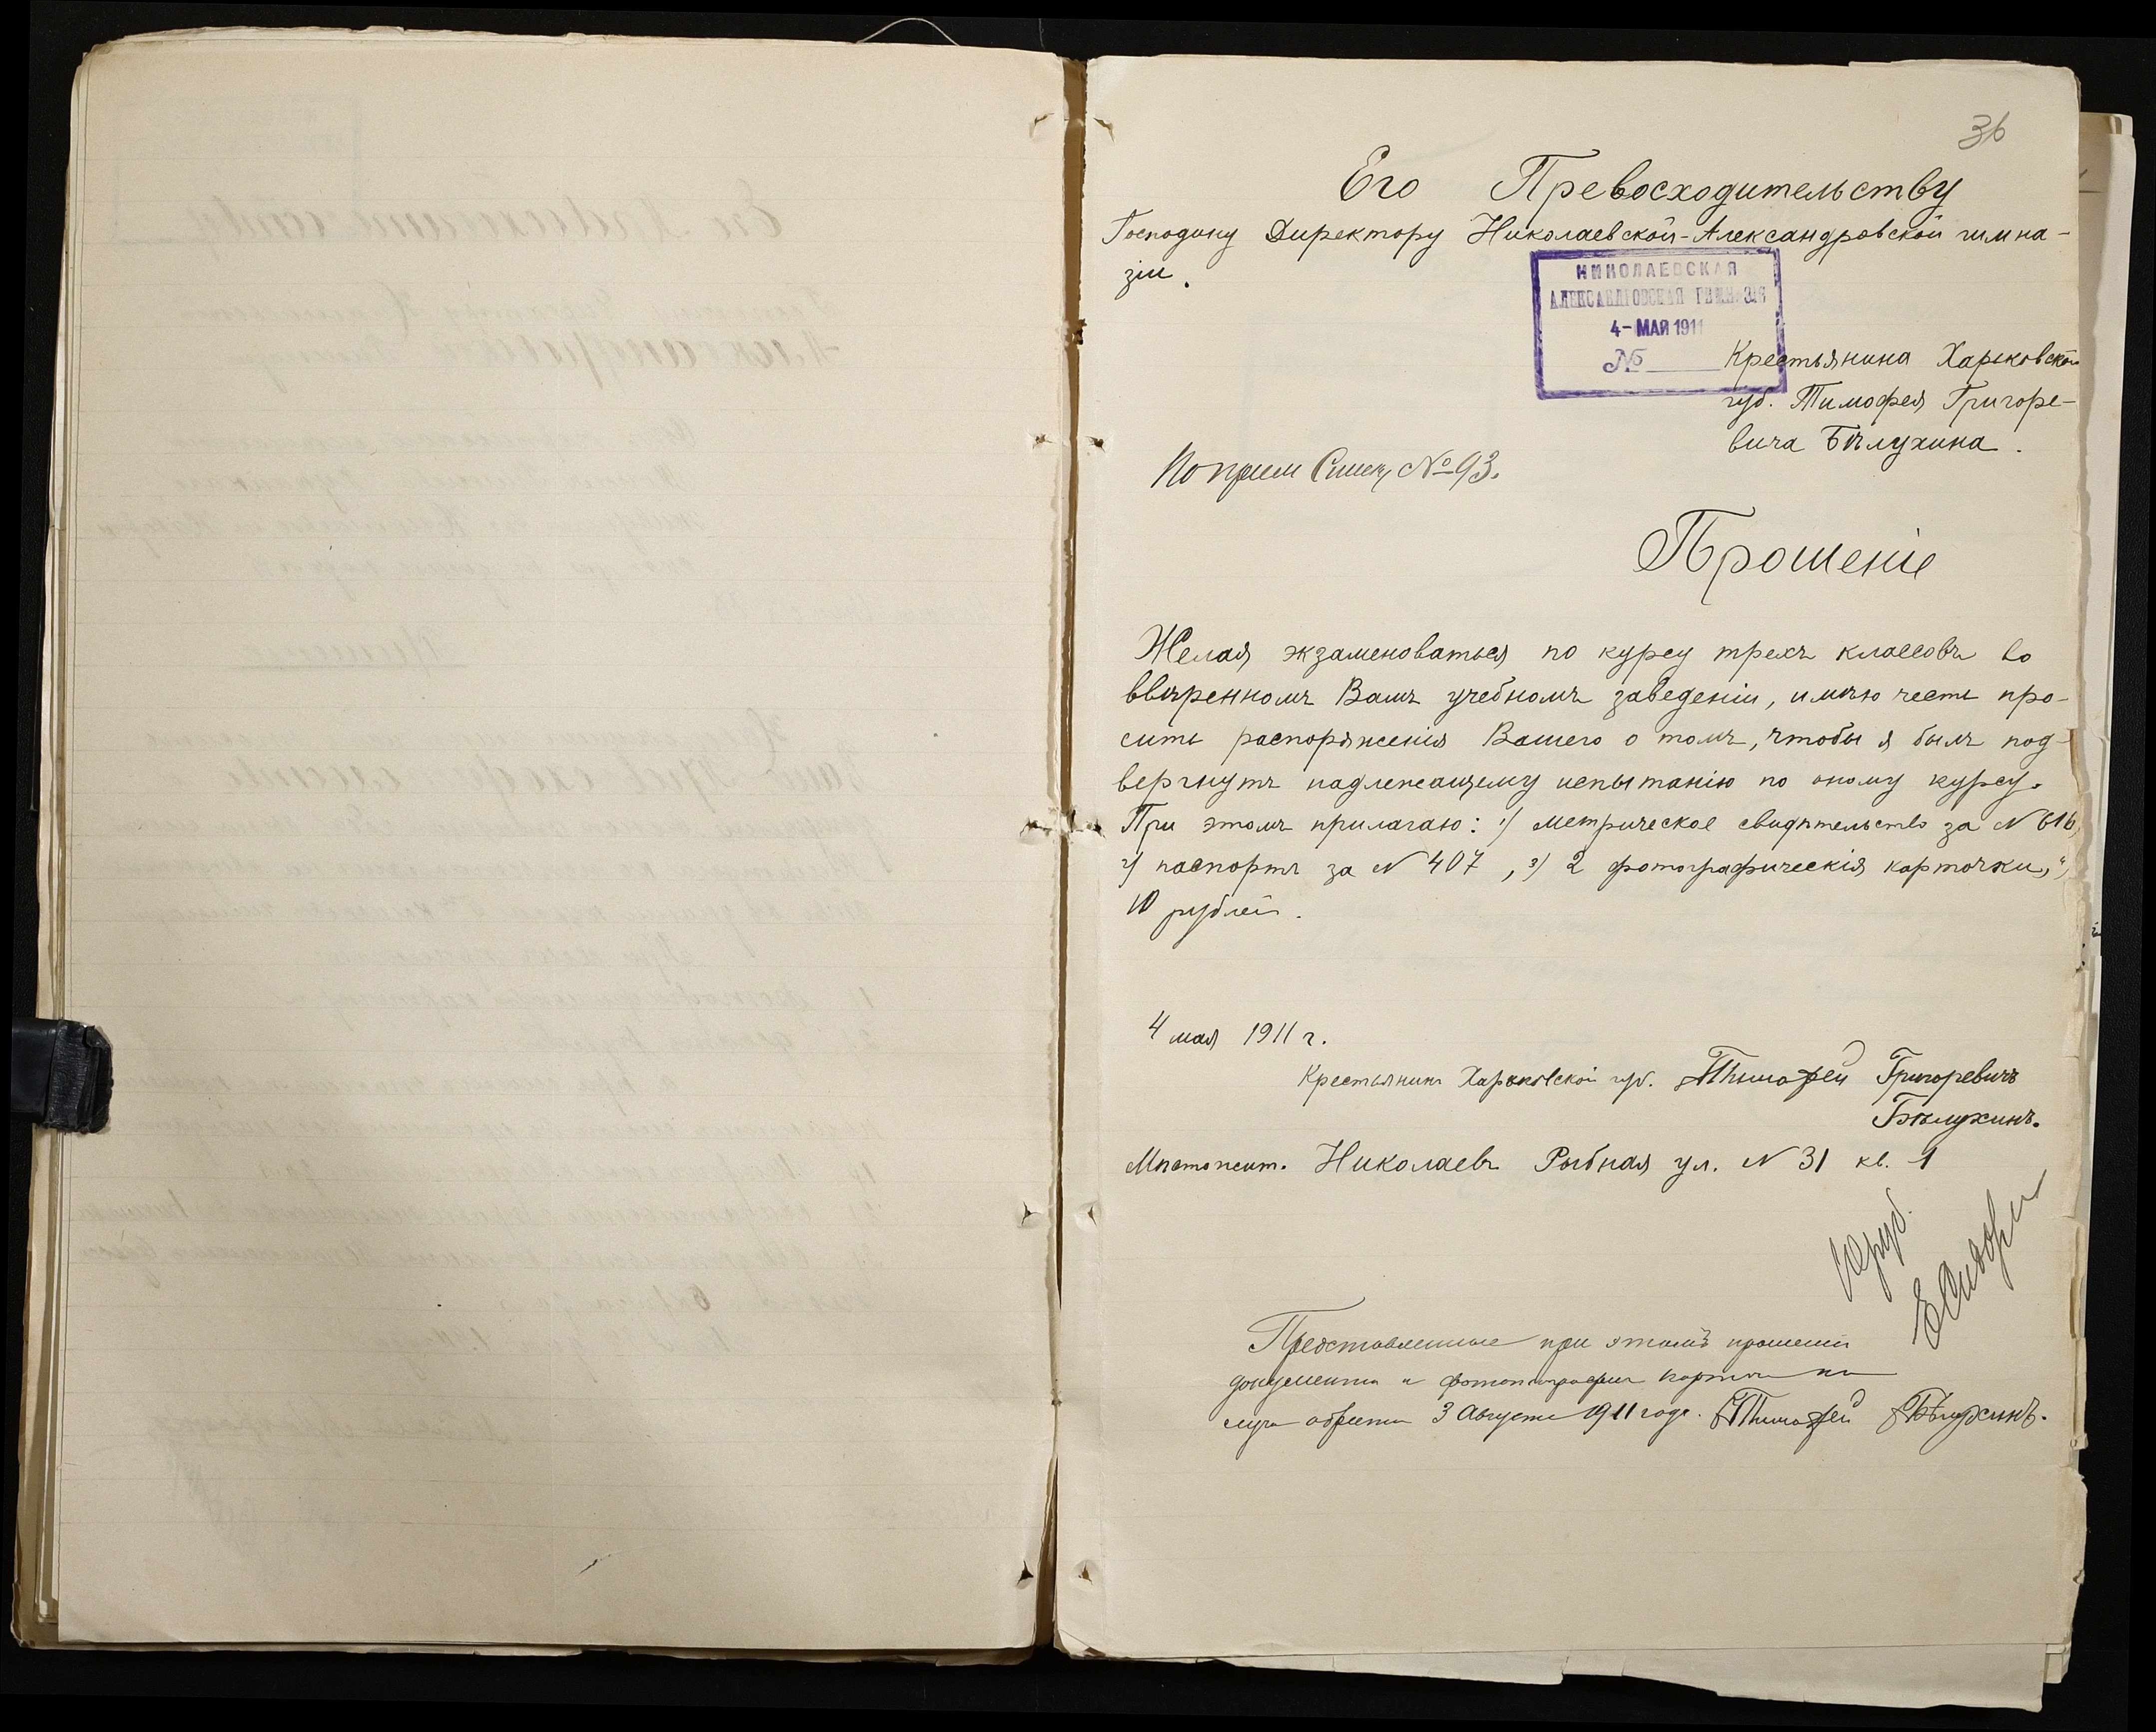 36
Его Превосходительству
Господину Директору Николаевской-Александровской гимна-
зіи.
НИКОЛАЕВСКАЯ
АЛЕКСАНДРОВСКАЯ ГИМНАЗІЯ
4-МАЯ 1911
№
Крестьянина Харьковской
губ. Тимофея Григоре-
вича Бѣлухина.
№ 93.
Прошеніе
Желая экзаменоваться по курсу трехъ классовъ во
ввѣренномъ Вамъ учебномъ заведеніи, имѣю честь про-
сить распоряженія Вашего о томъ, чтобы я былъ под-
вергнутъ надлежащему испытанію по оному курсу.
При этомъ прилагаю: 1) метрическое свидѣтельство за N 616,
2) паспортъ за N 407, 3) 2 фотографическія карточки, 4)
10 рублей.
4 мая 1911 г.
Крестьянинъ Харьковской губ. Тимофей Григоревичъ
Бѣлухинъ.
Мѣстожит. Николаевъ Рыбная ул. N 31 кв. 1
10 руб.
Представленные при этомъ прошеніи
документы и
3 Августа 1911 года. Тимофей Бѣлухинъ.